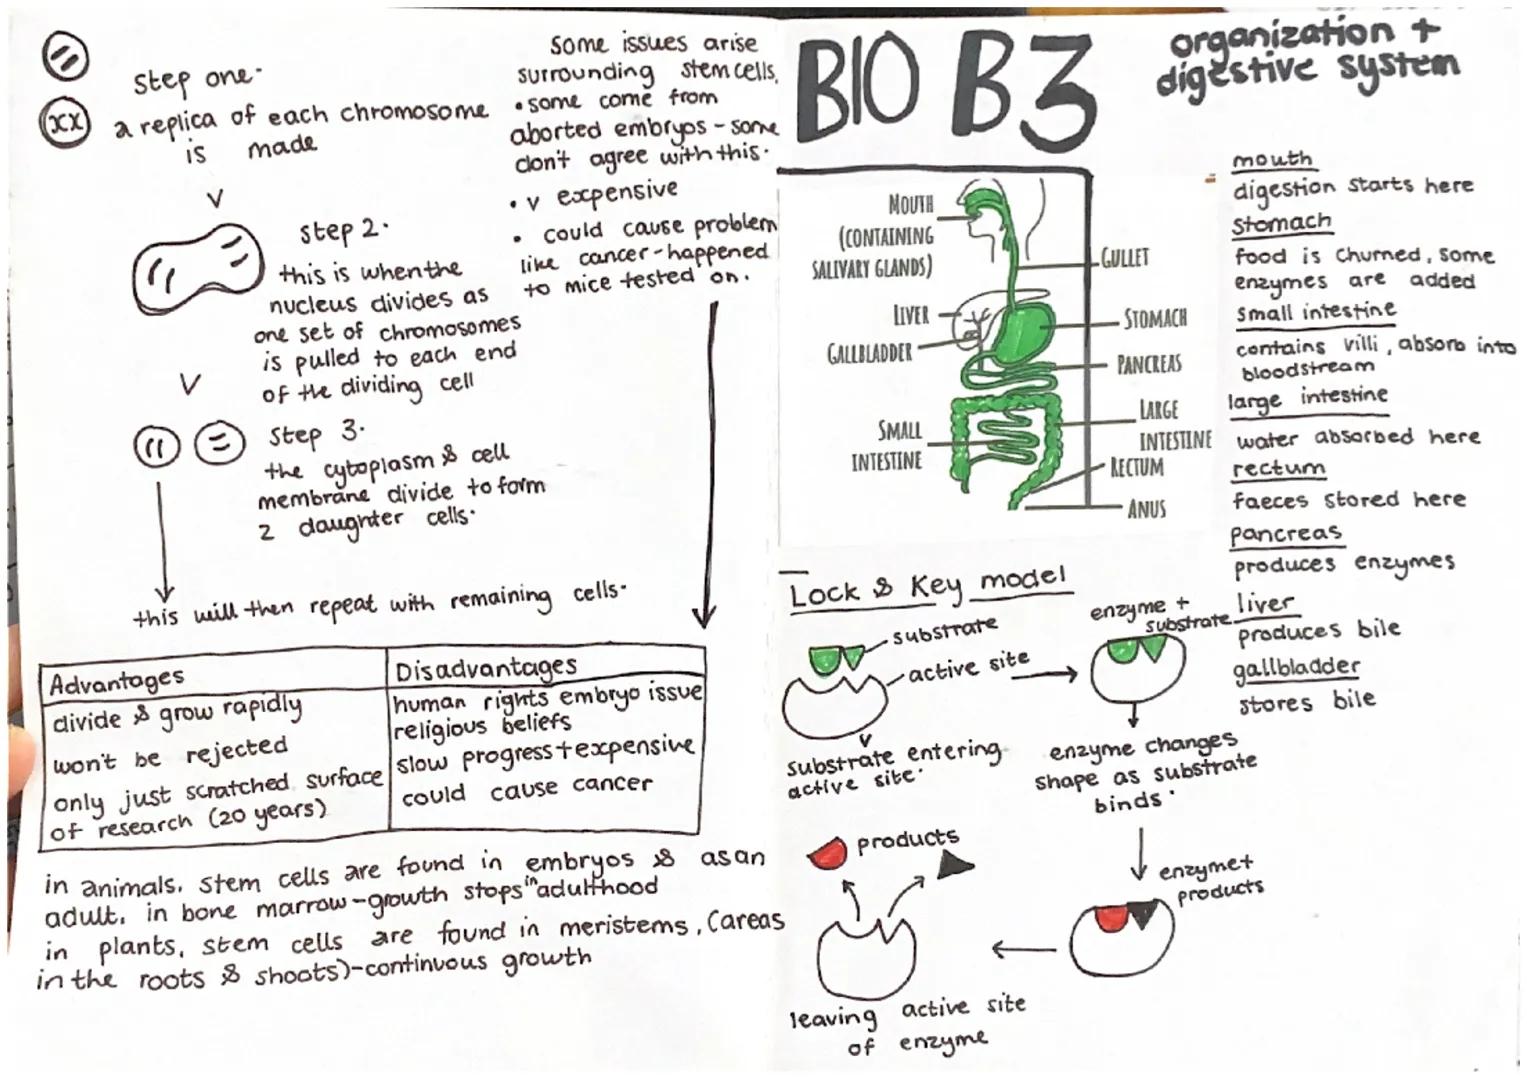 step one.
a replica of each chromosome
is made
step 2.
this is when the
nucleus divides as
one set of chromosomes
is pulled to each end
of the dividing cell
step 3.
the cytoplasm & cell
membrane divide to form
2 daughter cells.
this will then repeat with remaining cells.
some issues arise
surrounding stem cells.
• some come from
aborted embryos - some
don't agree with this.
• v expensive
• could cause problem
like cancer - happened
to mice tested on.
Advantages
divide & grow rapidly
won't be rejected
only just scratched surface
of research (20 years)
Disadvantages
human rights embryo issue
religious beliefs
slow progress + expensive
could cause cancer
in animals, stem cells are found in embryos & as an
adult, in bone marrow - growth stops in adulthood
in plants, stem cells are found in meristems, (areas
in the roots & shoots) - continuous growth
BIO B3
organization +
digestive system
MOUTH
(CONTAINING
SALIVARY GLANDS)
LIVER
GALLBLADDER
SMALL
INTESTINE
GULLET
STOMACH
PANCREAS
LARGE
INTESTINE
RECTUM
ANUS
mouth
digestion starts here
stomach
food is churned, some
enzymes are added
small intestine
contains villi, absorb into
bloodstream
large intestine
water absorbed here
rectum
faeces stored here
pancreas
produces enzymes
liver
produces bile
gallbladder
stores bile
Lock & Key model
substrate
active site
substrate entering
active site.
enzyme +
substrate
enzyme changes
shape as substrate
binds.
enzyme +
products
products
leaving active site
of enzyme